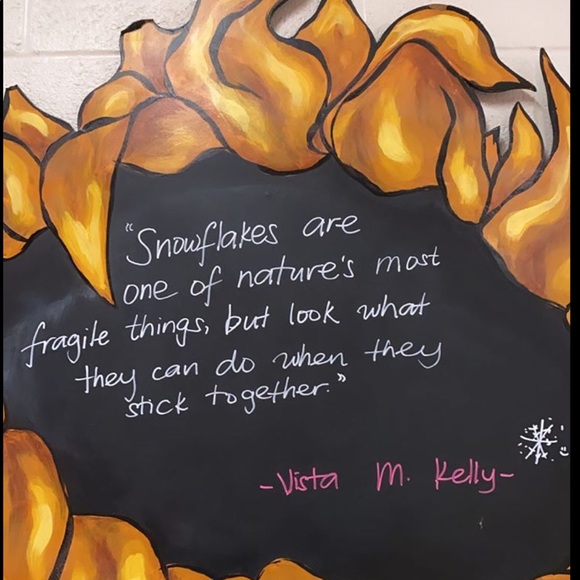 "Snowflakes are
one of nature's most
fragile things, but look what
they can do when they
stick together."
-Vista M. Kelly-